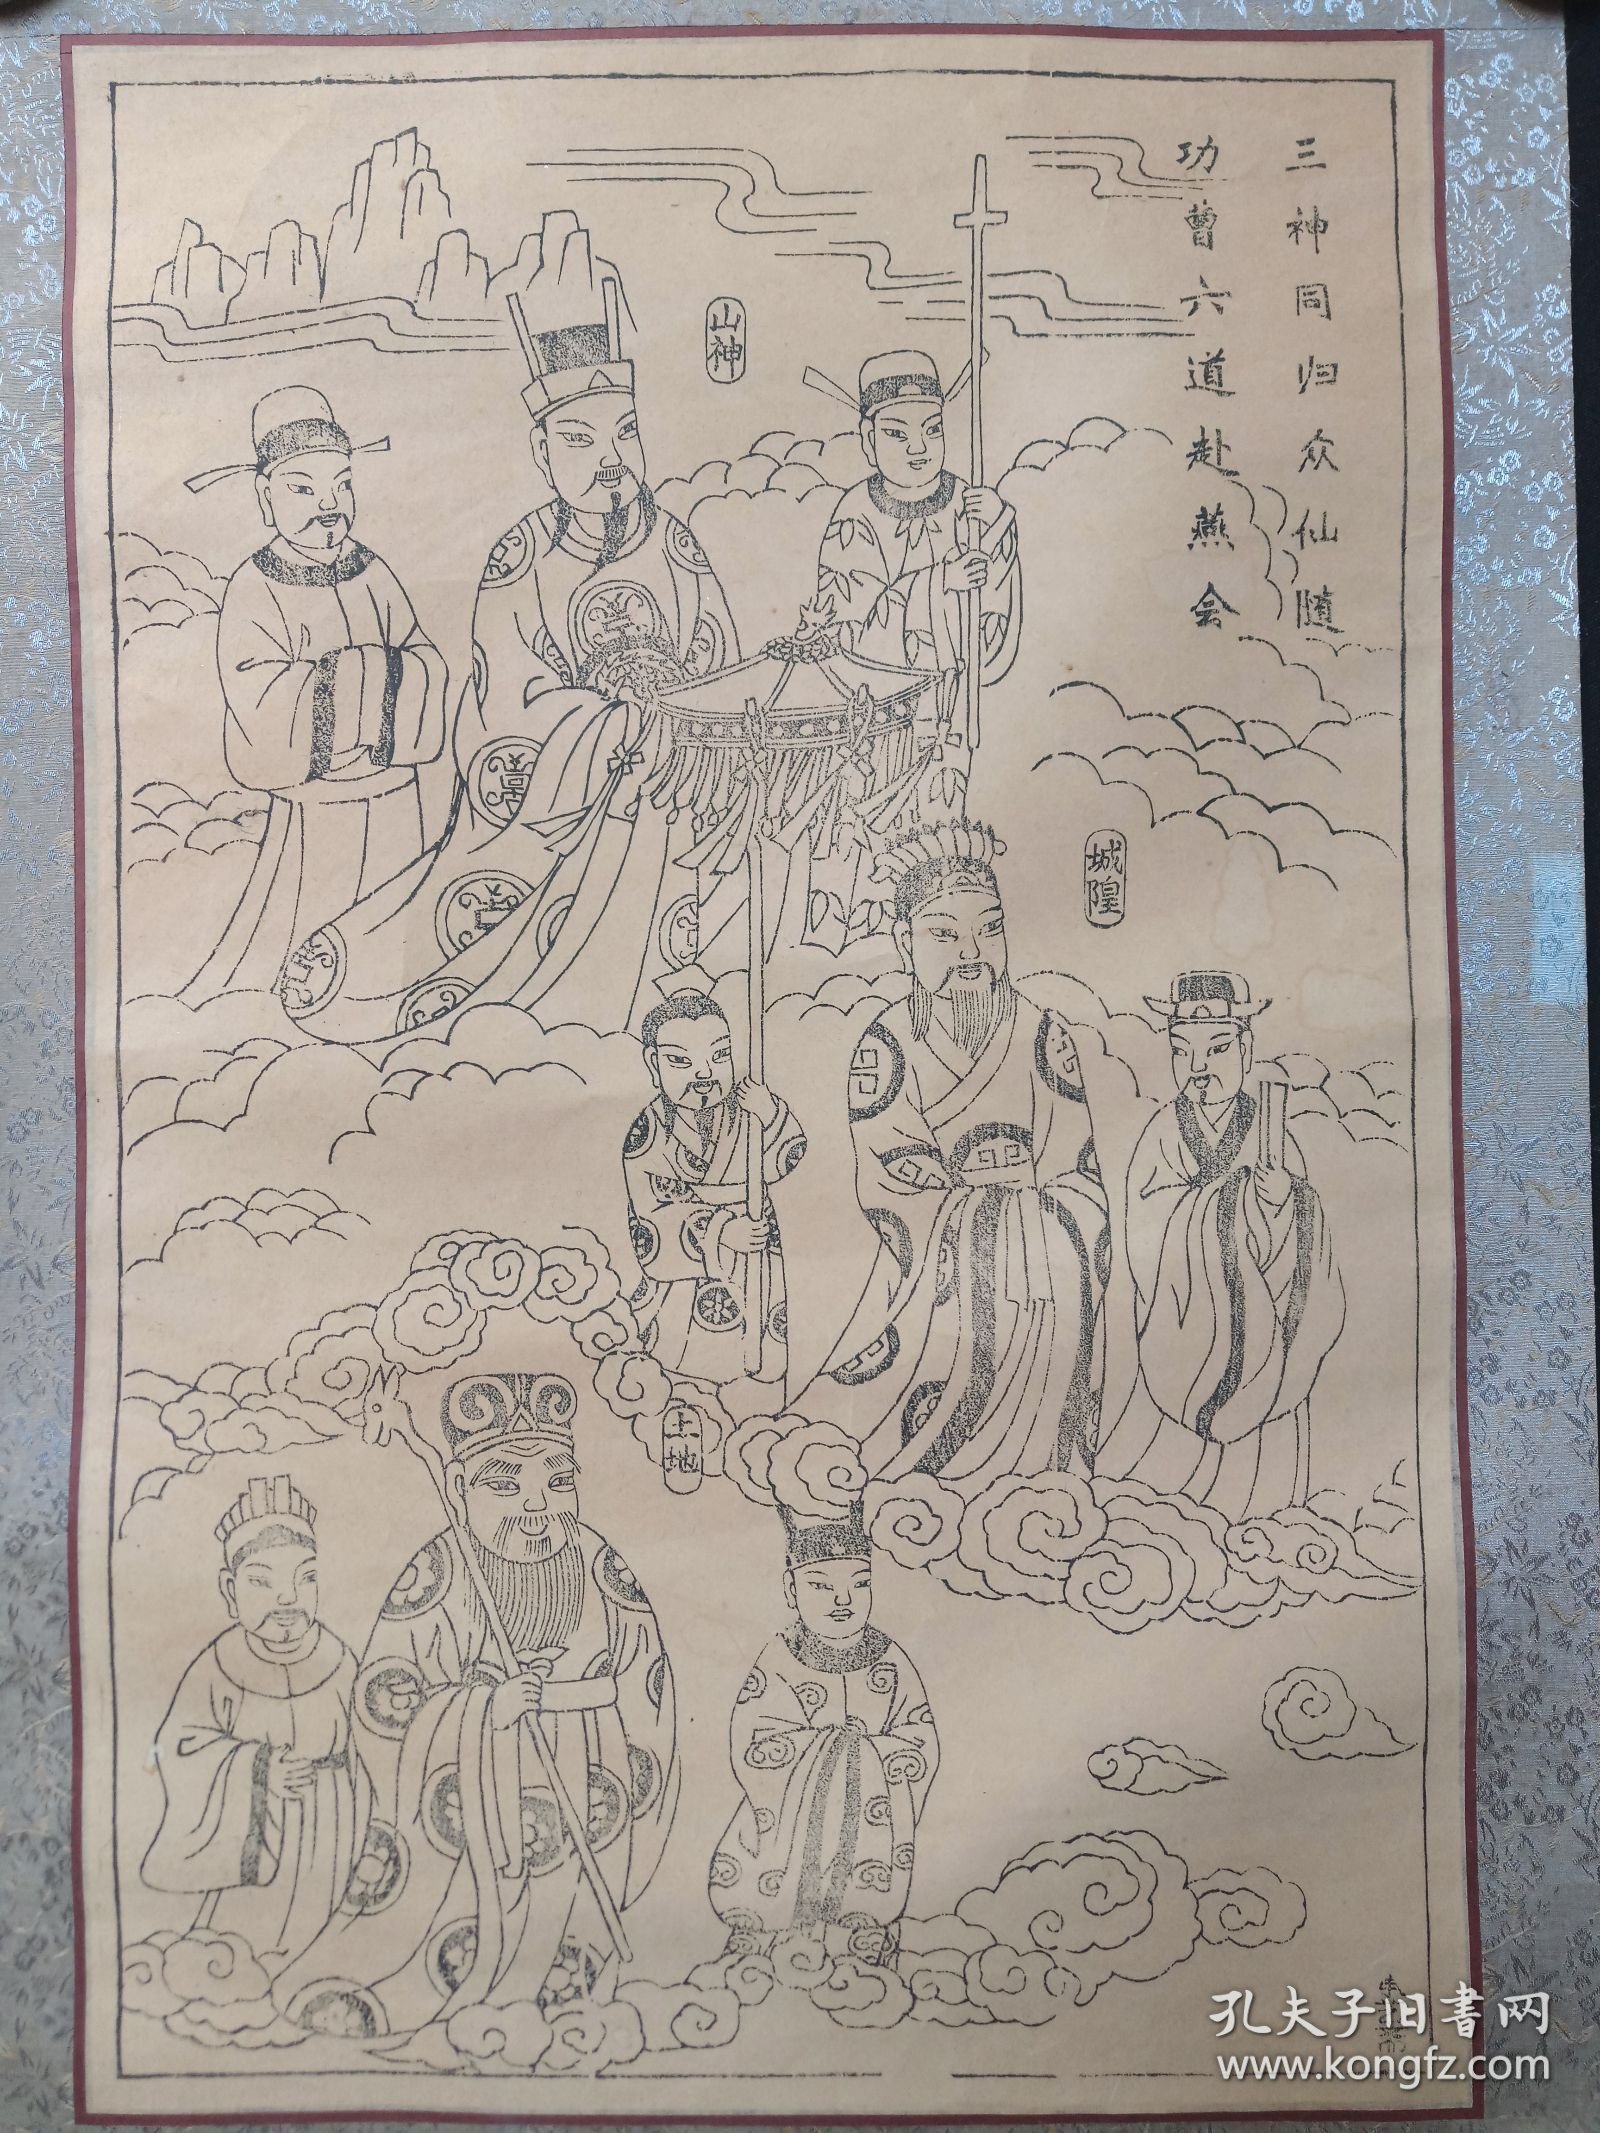 三神同归众仙随
功曹六道赴燕会
山神
城隍
土地
孔夫子旧书网
www.kongfz.com